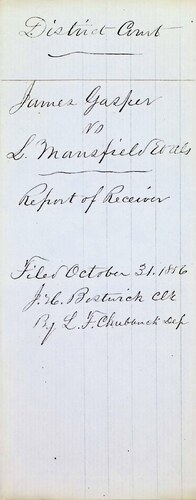 District Court
James Gasper
vs
L. Mansfield et als
Report of Receiver
Filed October 31. 1856
J. C. Bostwick Clk
By L. F. Chubbuck Dep